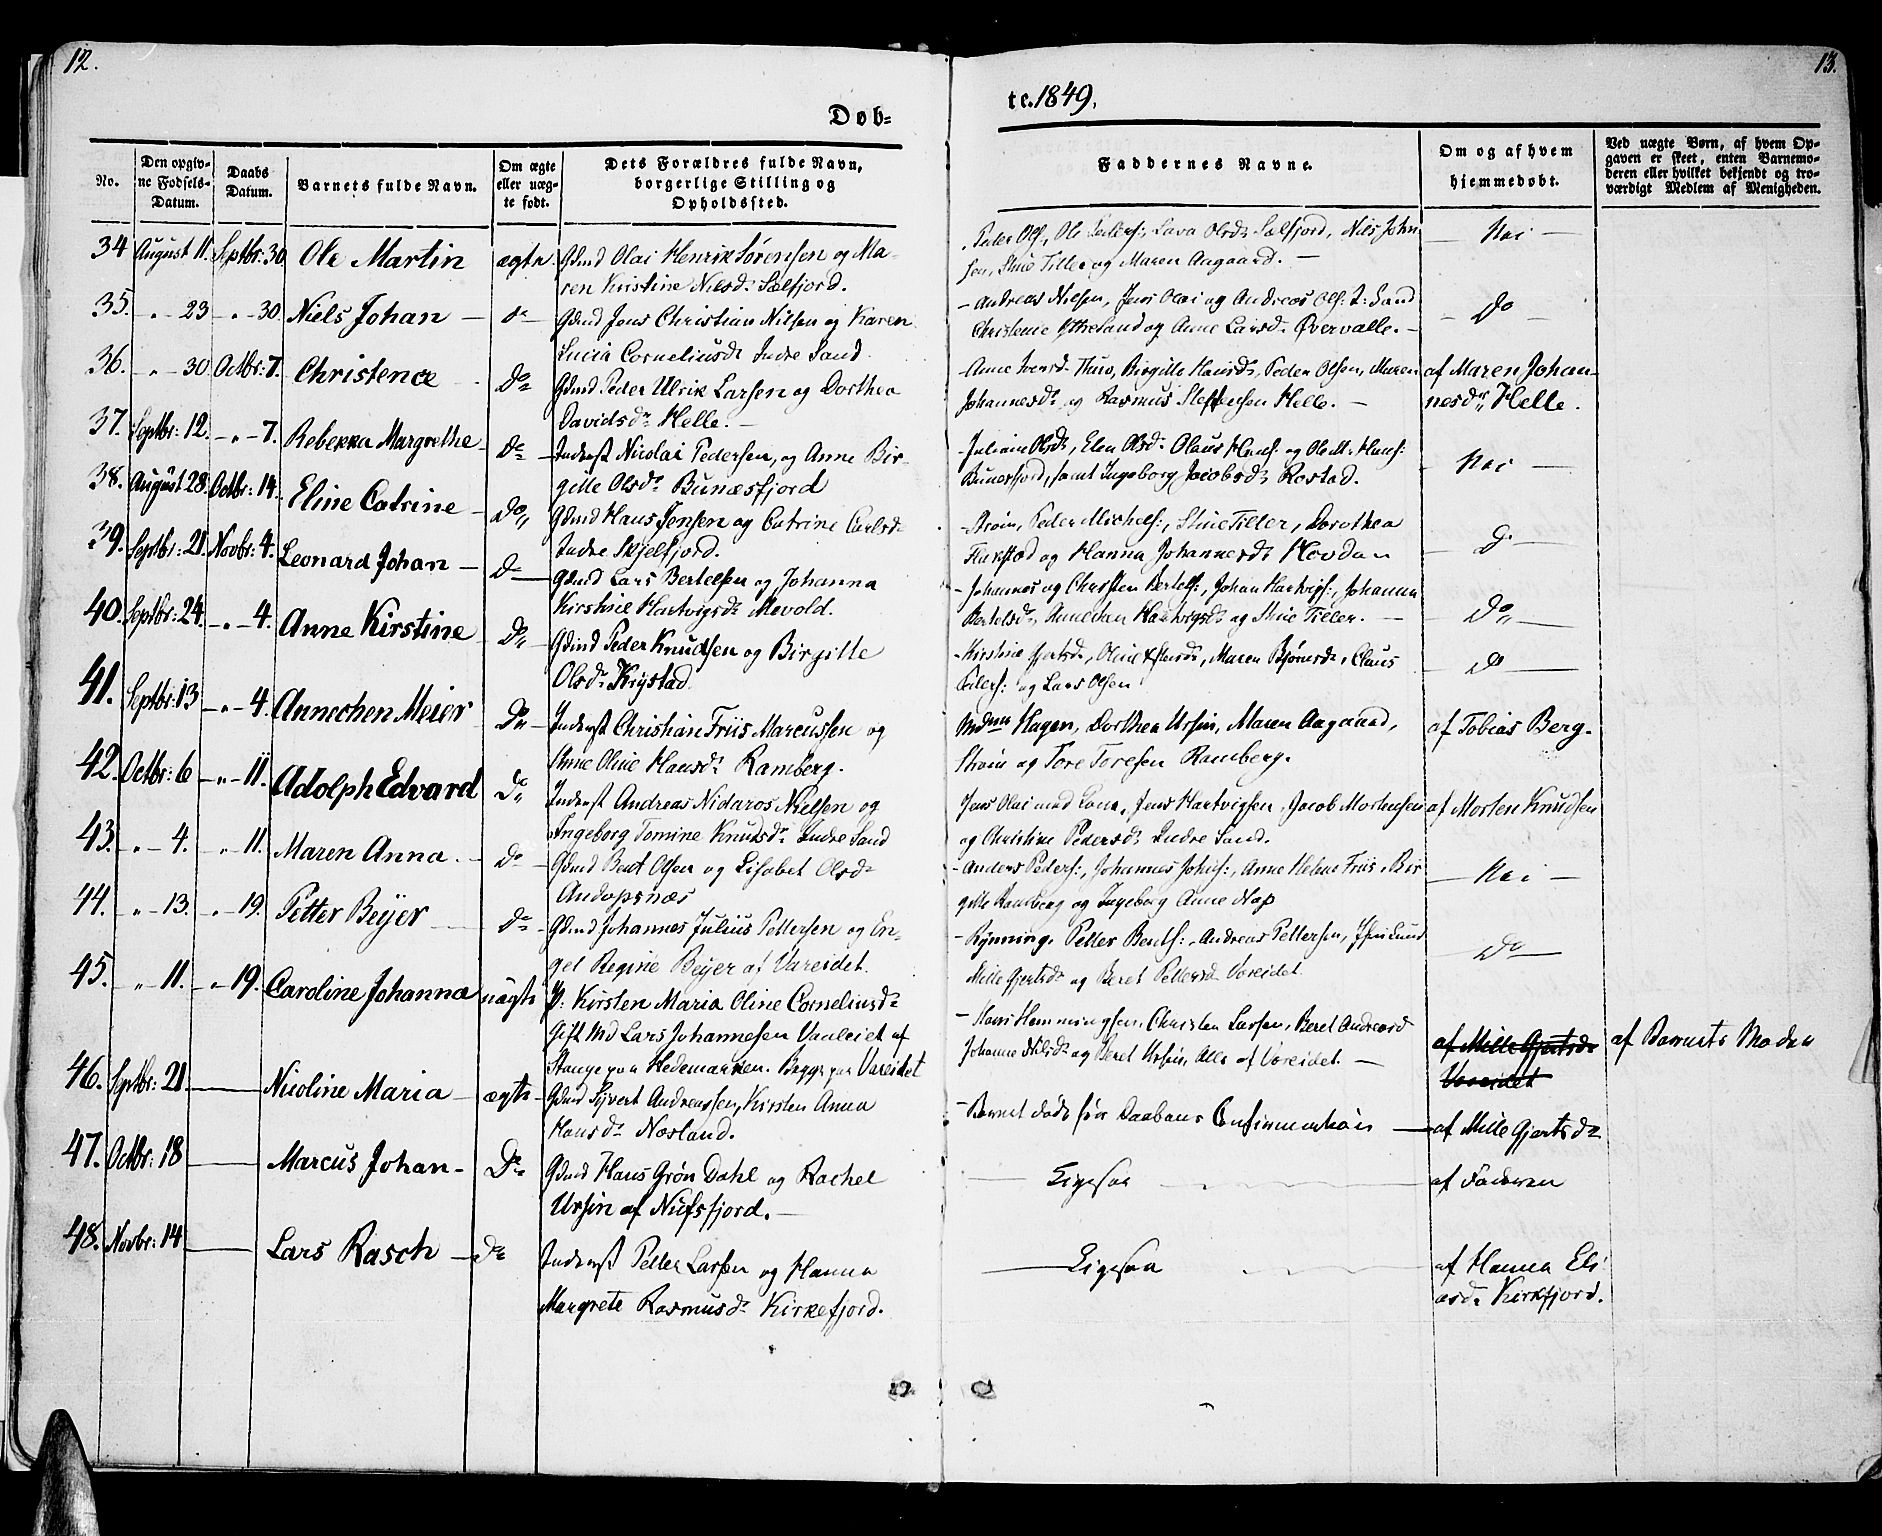 12.
13.
Døb-
te. 1849.
No.
Den opgiv-
ne Fødsels-
Datum.
Daabs
Datum.
Barnets fulde Navn.
Om ægte
eller uæg-
te født.
Dets Forældres fulde Navn,
borgerlige Stilling og
Opholdssted.
Faddernes Navne.
Om og af hvem
hjemmedøbt.
Ved uægte Børn, af hvem Op-
gaven er skeet, enten Barnemo-
deren eller hvilket bekjendt og tro-
værdigt Medlem af Menigheden.
34 August 11. Septbr: 30. Ole Martin ægte Gdmd Olai Henrik Sørensen og Ma-
ren Kirstine Nilsdr Sælfjord.
Peder Ols:, Ole Peders:, Lava Olsdr Sælfjord, Nils John
sen, Stine Tiller og Maren Aagaard. —
Nei
35. " - 23 " - 30. Niels Johan — do Gdmd Jens Christian Nilsen og Karen
Lucia Corneliusdr Indre Sand.
- Andreas Nielsen, Jens Olai og Andreas Ols: I: Sand
Christine Yttresand og Anne Larsdr Øvervalle. -
Do
36. " - 30 Octbr: 7. Christence Do Gdmd Peder Ulrik Larsen og Dorthea
Davidsdr Helle. —
Anne Iversdr Thuv, Birgitte Hansdr, Peder Olsen, Maren
Johannesdr og Rasmus Steffensen Helle. —
af Maren Johan-
nesdr Helle.
37. Septbr: 12. - " - 7. Rebekka Margrethe Do Inderst Nicolai Pedersen, og Anne Bir-
gitte Olsdr Bunæsfjord
- Juliane Olsdr, Elen Olsdr Olaus Hans: og Ole M. Hans:
Bunesfjord, samt Ingeborg Jacobsdr Rostad.
Nei
38. August 28. Octbr: 14. Eline Catrine Do Gdmd Hans Jensen og Catrine Carlsdr
Indre Skjelfjord.
- Strøm, Peder Michels:, Stine Tiller, Dorothea
Flakstad og Hanna Johannesdr Hovdan
Do
39. Septbr: 21. Novbr: 4. Leonard Johan Do Gdmd Lars Bertelsen og Johanna
Kirstine Hartvigsdr Mevold.
- Johannes og Christen Bertels:, Johan Hartvigs:, Johanna
Bertelsdr, Hartvigsdr og Stine Tiller. —
Do
40. Septbr: 24. - " - 4. Anne Kirstine Do Gdmd Peder Knudsen og Birgitte
Olsdr Krystad.
- Kirstine Gjertsdr, Oline, Maren Bjørnsdr, Claus
Peders: og Lars Olsen
Do
41. Septbr: 13 - " - 4. Annechen Meier Do Inderst Christian Friis Marcussen og
Stine Oline Hansdr Ramberg.
Mdme Hagen, Dorthea Ursin, Maren Aagaard,
Strøm og Tore Toresen Ramberg.
af Tobias Berg.
42. Octbr: 6 - " - 11. Adolph Edvard Do Inderst Andreas Nidaros Nielsen og
Ingeborg Tomine Knudsdr Indre Sand
Jens Olai med Kone, Jens Hartvigsen, Jacob Mortensen
og Christine Pedersdr Indre Sand.
af Morten Knudsen
43. " - 4. " - 11. Maren Anna. Do Gdmd Bent Olsen og Lisabet Olsdr
Andopsnæs
- Anders Peders:, Johannes Johs:, Anne Helene Friis, Bir
gitte Ramberg og Ingeborg Anne Nap
Nei
44. " - 13. " - 19. Petter Beyer Do Gdmd Johannes Julius Pettersen og En-
gel Regine Beyer af Vareidet.
- Rynning, Petter Bents:, Andreas Pettersen, Lund
Mille Gjertsdr og Beret Pettersdr Vareidet.
Do
45. " - 11. " - 19. Caroline Johanna uægte P: Kirsten Maria Oline Corneliusdr
Gift Md Lars Johannesen af
Stange paa Hedemarken. Begge paa Vareidet
- Hans Hemmingsen, Christen Larsen, Beret Andreasdr
Johanne Nilsdr og Beret Ursin, Alle af Vareidet. —
af Mille Gjertsdr
Vareidet
af Barnets Moder
46. Septbr: 21. Nicoline Maria ægte Gdmd Syvert Andreassen, Kirsten Anna
Hansdr Næsland.
- Barnet døde før Daabens Confirmation
af Mille Gjertsdr
47. Octbr: 18 Marcus Johan - Do Gdmd Hans Grøn Dahl og Rachel
Ursin af Nufsfjord. —
Ligesaa
af Faderen
48. Novbr: 14 Lars Rasch Do Inderst Petter Larsen og Hanna
Margrete Rasmusdr Kirkefjord.
Ligesaa
af Hanna Eli
asdr Kirkfjord.